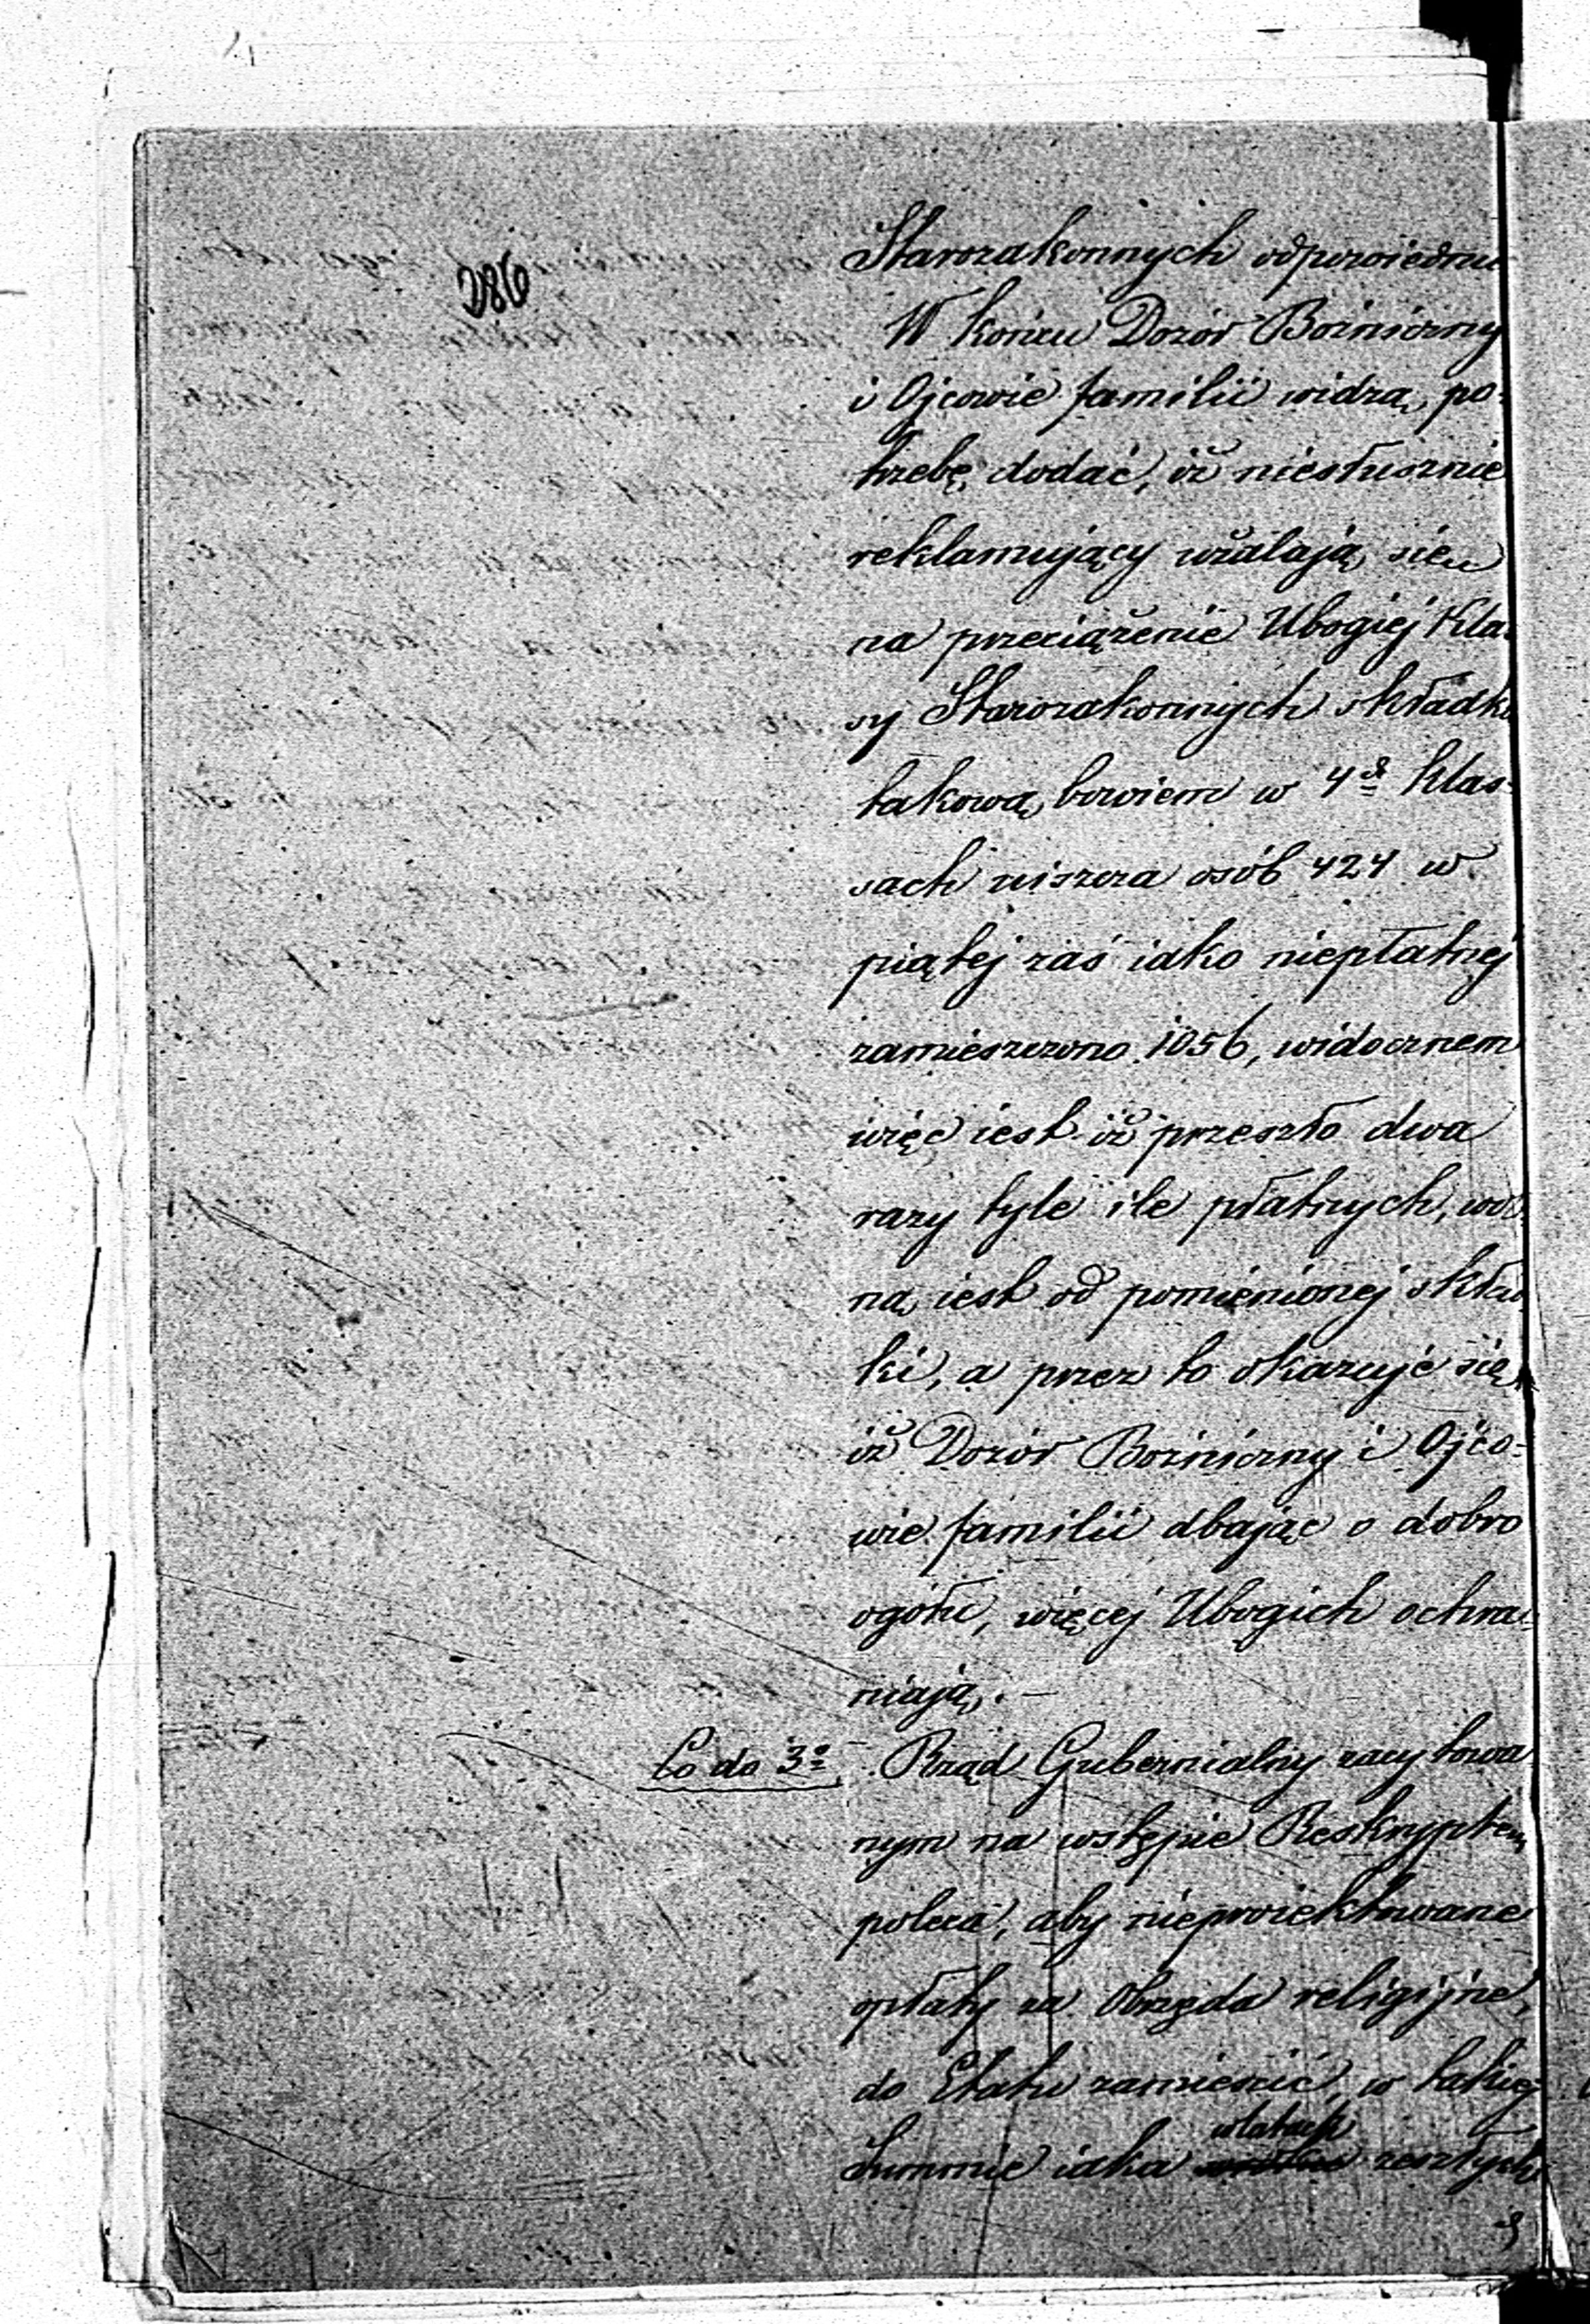 286
Starozakonnych odpowiednu
W końcu Dozór Bożniczny
i Ojcowie familii widzą po-
trzebę dodać, iż niesłusznie
reklamujący użalają się
na przeciążenie Ubogiej Kla-
sy Starozakonnych składką
takową bowiem w 4ch klas-
sach uiszcza osób 424 w
piątej zaś iako niepłatnej
zamieszczono 1056, widocznem
więc iest iż przeszło dwa
razy tyle ile płatnych, wol-
ną iest od pomienionej skład
ki, a przez to okazuje się
iż Dozór Bożniczny i Ojco-
wie familii dbając o dobro
ogółu, więcej Ubogich ochra-
niają. —
Co do 3o Rząd Gubernialny zacytowa
nym na wstępie Reskryptem
poleca, aby nieproiektowane
opłaty za Obrzęda religijne,
do Etatu zamieścić, w takiej
w latach
Summie iaka zeszłych